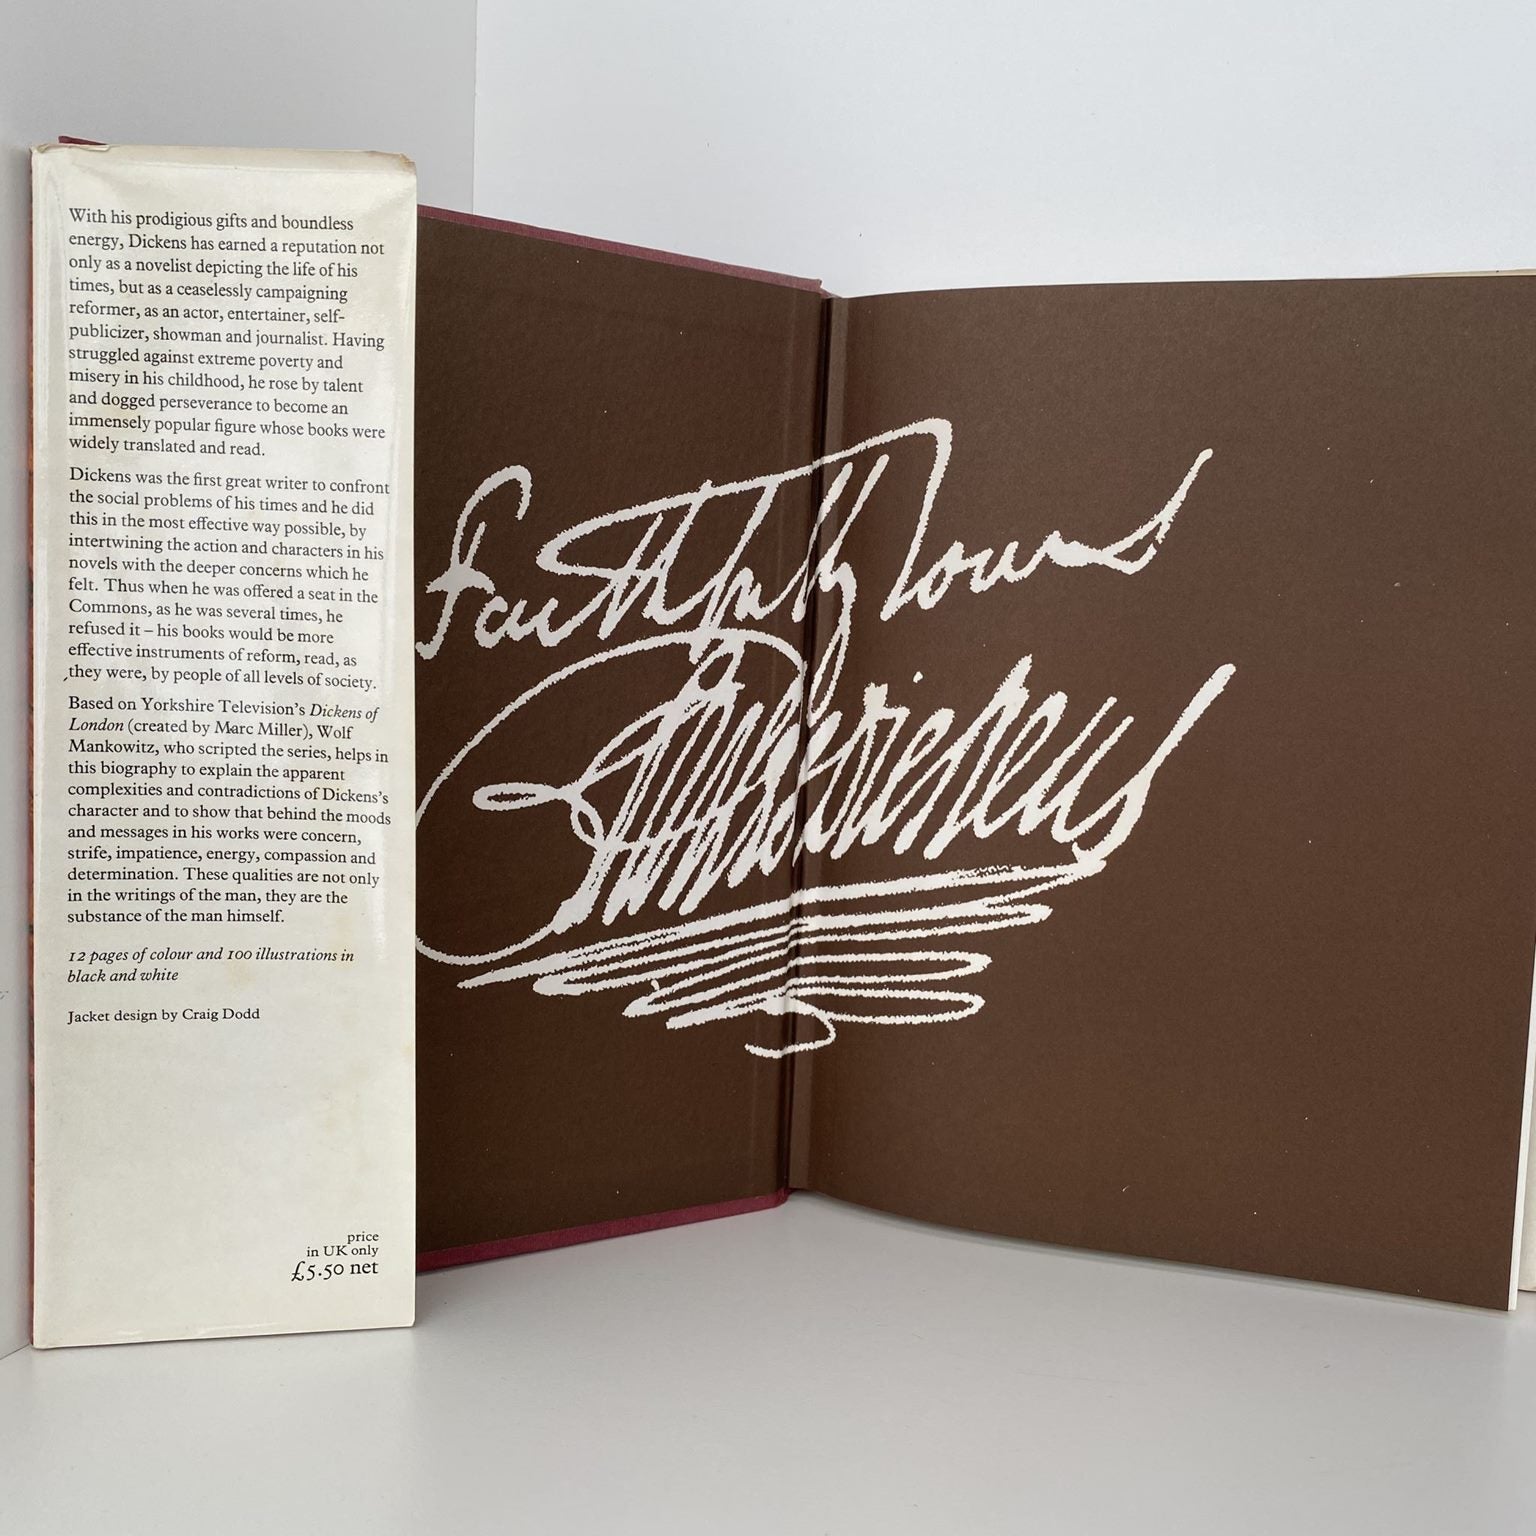 With his prodigious gifts and boundless
energy, Dickens has earned a reputation not
only as a novelist depicting the life of his
times, but as a ceaselessly campaigning
reformer, as an actor, entertainer, self-
publicizer, showman and journalist. Having
struggled against extreme poverty and
misery in his childhood, he rose by talent
and dogged perseverance to become an
immensely popular figure whose books were
widely translated and read.
Dickens was the first great writer to confront
the social problems of his times and he did
this in the most effective way possible, by
intertwining the action and characters in his
novels with the deeper concerns which he
felt. Thus when he was offered a seat in the
Commons, as he was several times, he
refused it – his books would be more
effective instruments of reform, read, as
they were, by people of all levels of society.
Based on Yorkshire Television's Dickens of
London (created by Marc Miller), Wolf
Mankowitz, who scripted the series, helps in
this biography to explain the apparent
complexities and contradictions of Dickens's
character and to show that behind the moods
and messages in his works were concern,
strife, impatience, energy, compassion and
determination. These qualities are not only
in the writings of the man, they are the
substance of the man himself.
12 pages of colour and 100 illustrations in
black and white
Jacket design by Craig Dodd
price
in UK only
£5.50 net
Faithfully Yours
Charles Dickens